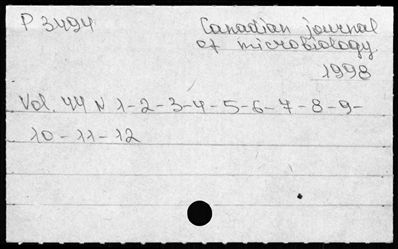 P 3494 Canadian journal
of microbiology
1998
Vol. 44 N 1-2-3-4-5-6-7-8-9-
10-11-12